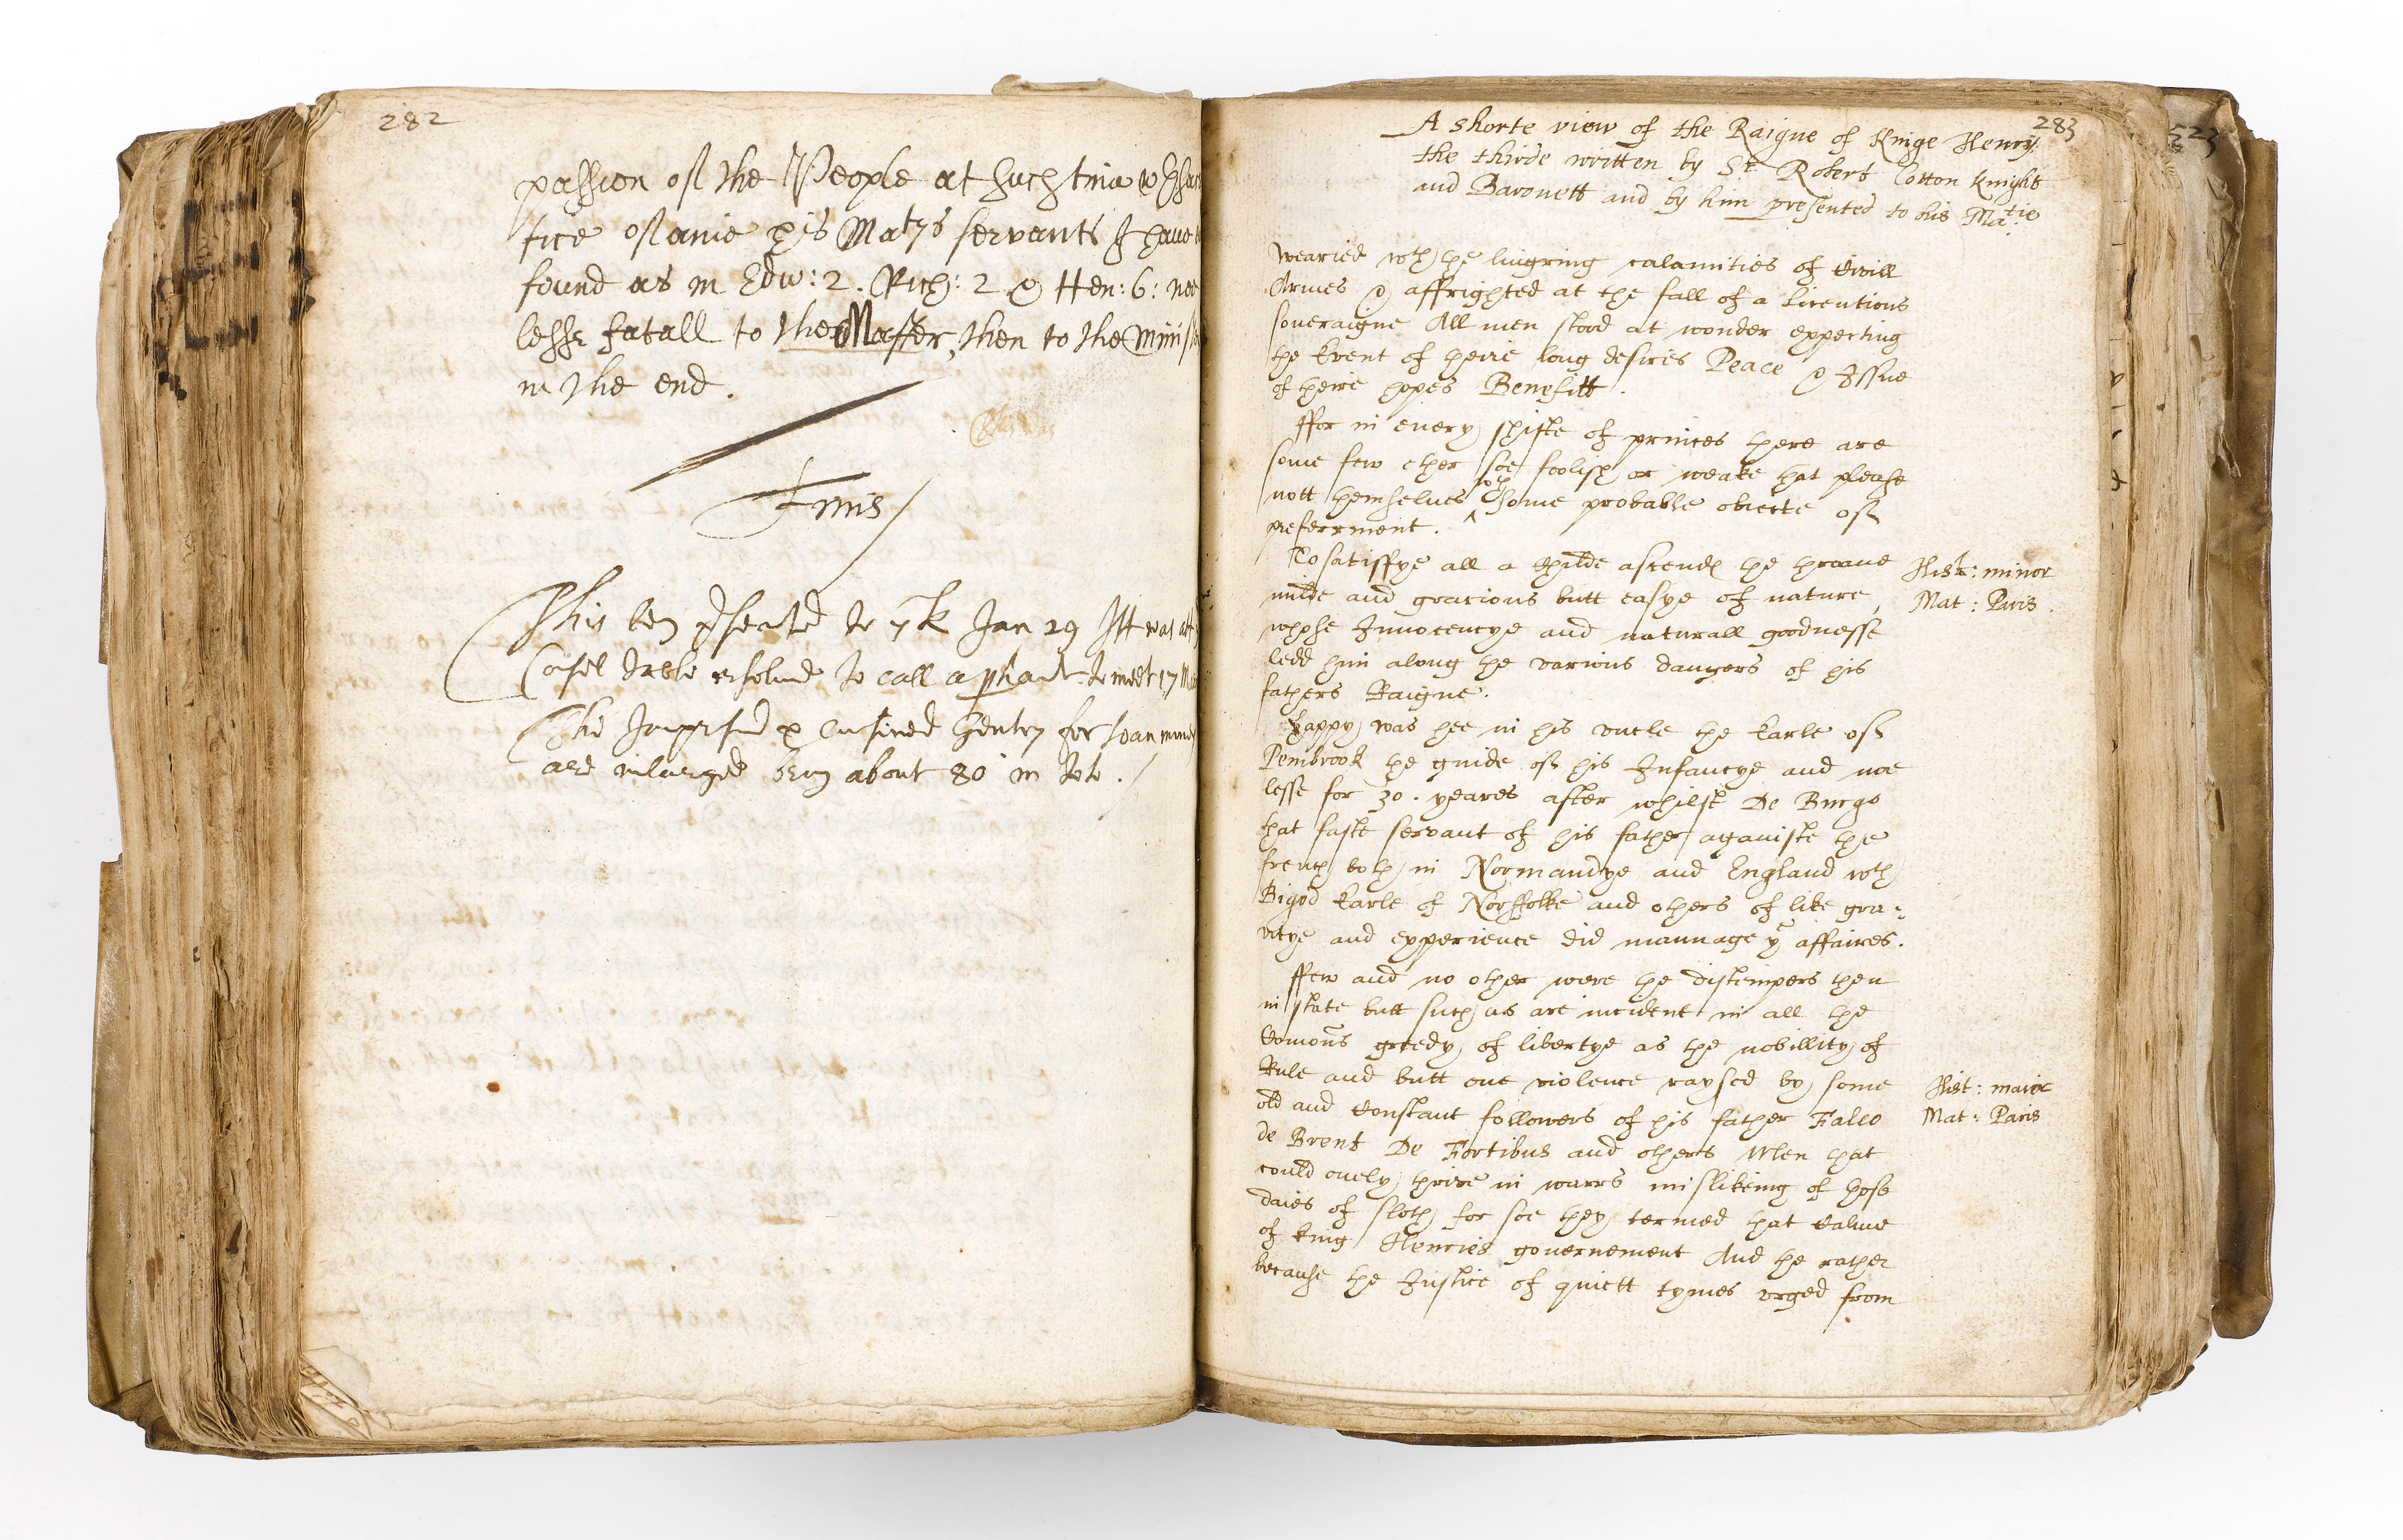 282
passion of the People at such times the sacri
fice of anie his Matys servants I haue
found as in Edw: 2. Rich: 2 & Hen: 6: noe
lesse fatall to the Master, then to the Minist
in the end.
Finis
This being psented to ye K Jan 29 Itt was att ye
Consel Table resolued to call a pliamt to meet 17 Ma
The Imprisnd & Confined Gentry for loan money
are inlarged being about 80 in tot.
283
523
A shorte view of the Raigne of Kinge Henry
the thirde written by Sr. Robert Cotton Knight
and Baronett and by him presented to his Matie
Wearied wth the lingring calamities of Civill
Armes & affrighted at the fall of a licentious
soueraigne All men stood at wonder expecting
the Event of theire long desires Peace & Issue
of theire hopes Benefitt.
ffor in euery shifte of princes there are
some few ether soe foolish or weake that please
nott themselues wth some probable obiecte of
preferrment.
To satisffye all a Childe ascends the throane
milde and gracious butt easye of nature,
whose Innocencye and naturall goodnesse
ledd him along the various dangers of his
fathers Raigne.
Hist: minor
Mat: Paris.
Happy was hee in his vncle the Earle of
Pembrook the guide of his Infancye and noe
lesse for 30. yeares after whilst De Burgo
that faste servant of his father againste the
french both in Normandye and England wth
Bigod Earle of Norffolke and others of like gra-
vitye and experience did mannage ye affaires.
ffew and no other were the distempers then
in state butt such as are incident in all the
Comons greedy of libertye as the nobillity of
Rule and butt one violence raysed by some
old and Constant followers of his father Falco
de Brent De Fortibus and others Men that
could onely thrive in warrs misliking of those
daies of sloth for soe they termed that Calme
of King Henries governement And the rather
because the Justice of quiett tymes vrged from
Hist: maior
Mat: Paris